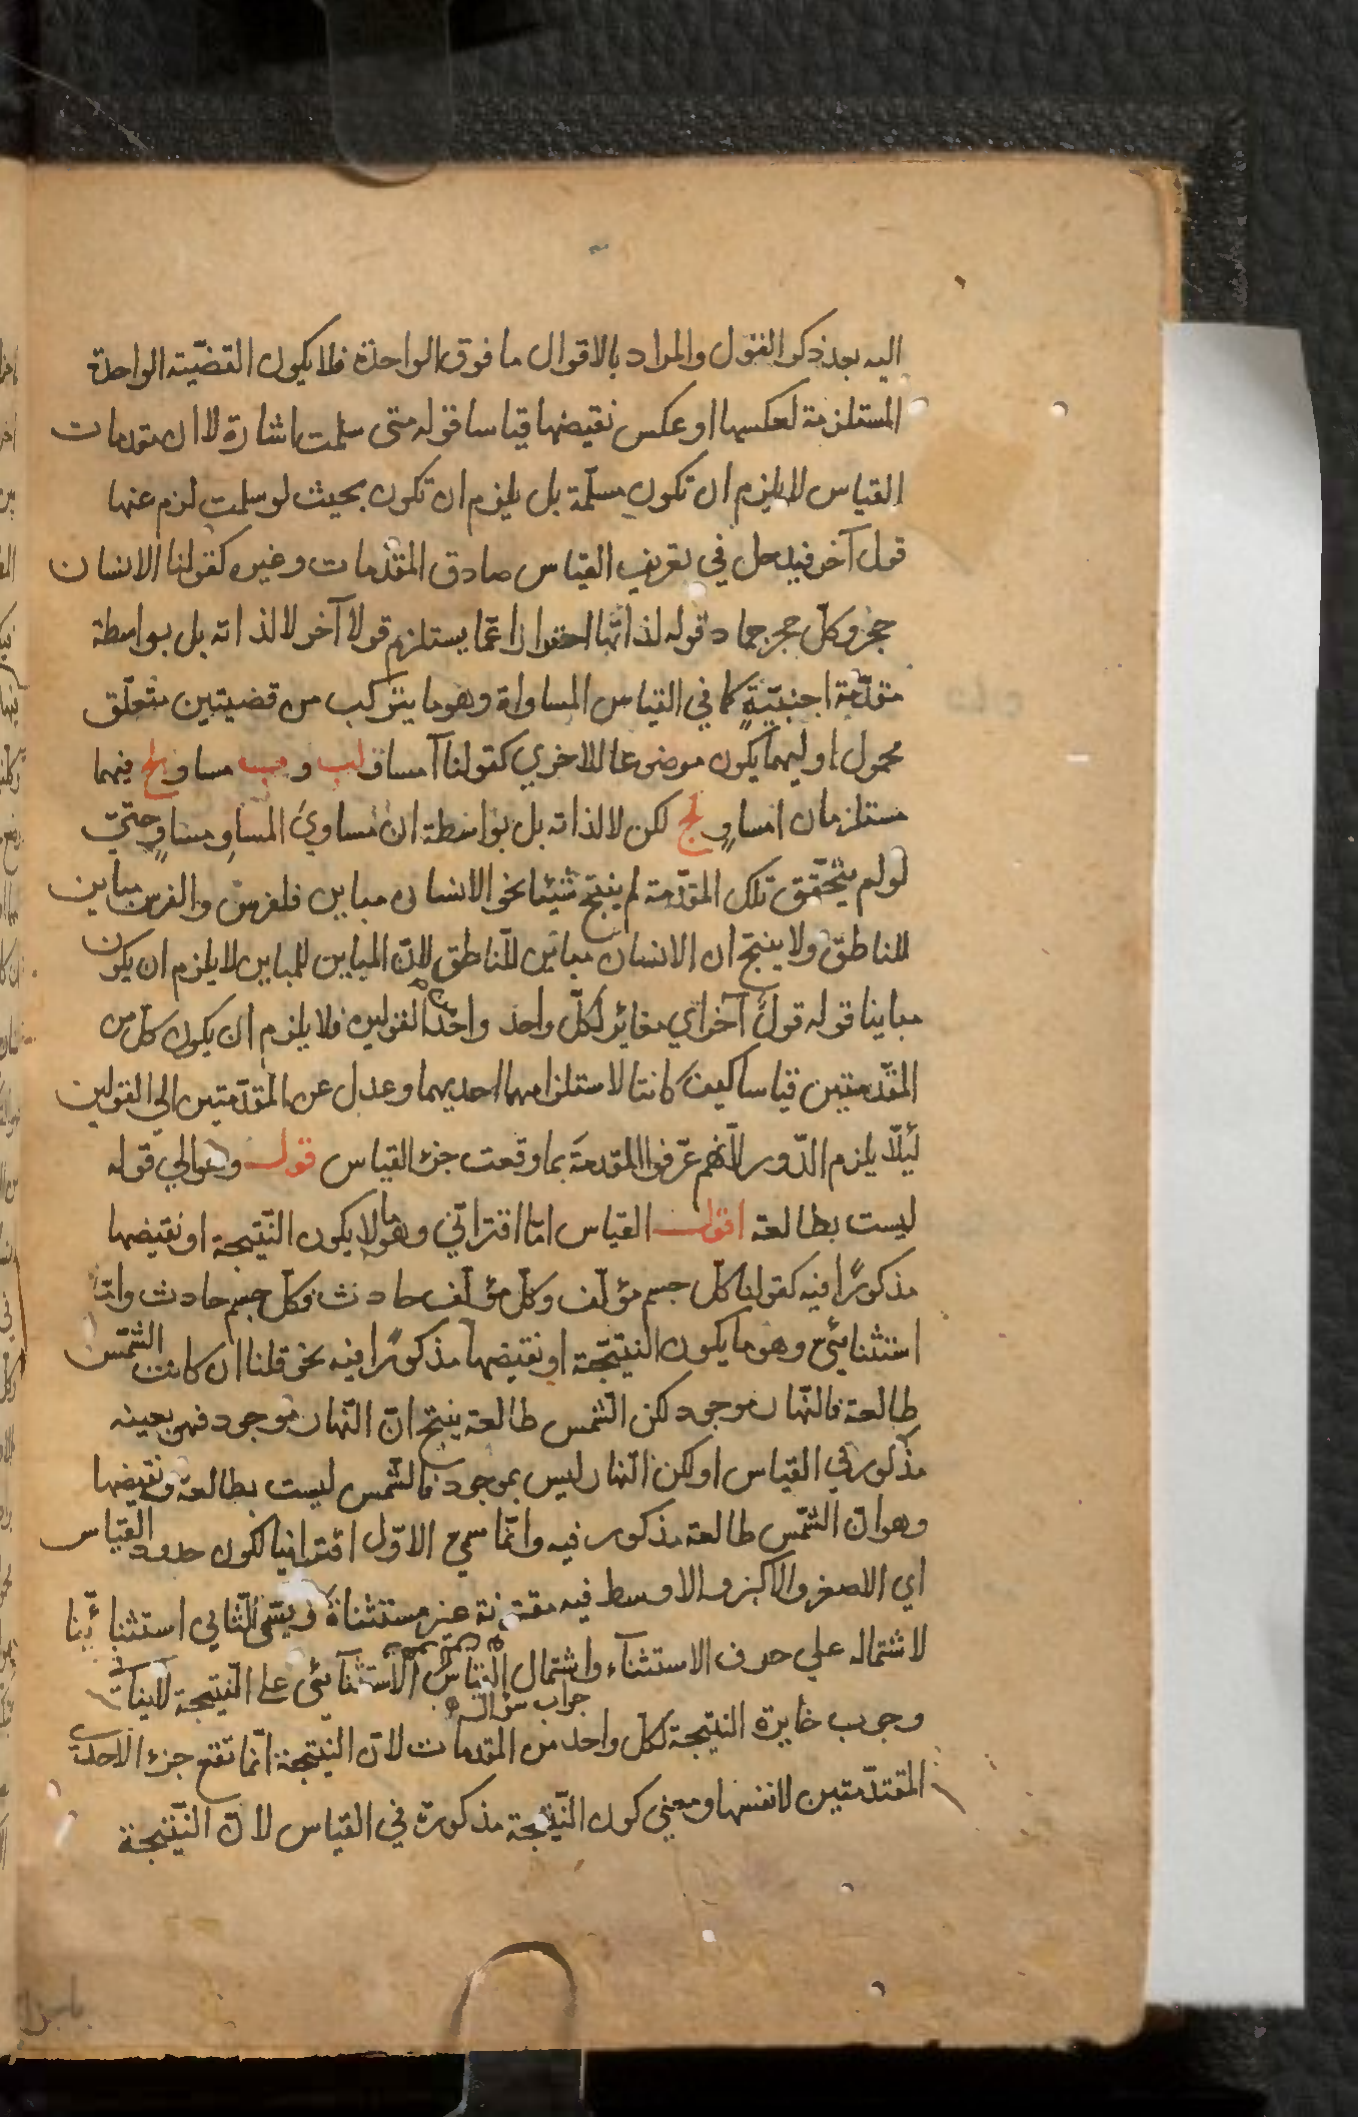 اليه بعد ذكر القول والمراد بالاقوال ما فوق الواحدة فلا يكون القضيّة الواحدة
المستلزمة لعكسها او عكس نقيضها قياسا قوله متى سلمت اشارة لا ان مقدمات
القياس لا يلزم ان تكون مسلّمة بل يلزم ان تكون بحيث لو سلمت لزم عنها
قول آخر فيدخل في تعريف القياس صادق المقدّمات وغيره كقولنا الانسان
حجر وكلّ حجر جماد قوله لذاتها احترازا عمّا يستلزم قولا آخر لا لذاته بل بواسطة
مقدّمة اجنبيّةٍ كما في القياس المساواة وهو ما يتركب من قضيتين متعلّق
محمول اوليهما يكون موضوعا للاخري كقولنا آ مساو لب و ب مساو لج فهما
مستلزمان ا مساوٍ لج لكن لا لذاته بل بواسطة ان مساوي المساو مساوٍ حتيّ
لو لم يتحقّق تلك المقدّمة لم ينتج شيئا نحو الانسان مباين فلفرس والفرس مباين
للناطق ولا ينتج ان الانسان مباين للنّاطق لانّ المباين للمباين لا يلزم ان يكون
مباينا قوله قولٌ آخر اي مغاير لكلّ واحد واحدٌ القولين فلا يلزم ان يكون كلّ من
المقدّمتين قياسا كيف كانتا لاستلزامهما احديهما وعدل عن المقدّمتين الي القولين
ليلّا يلزم الدّور لانّهم عرّفوا المقدمةَ بما وقعت جزء القياس قوله وهو الي قوله
ليست بطالعة اقول القياس امّا اقتراني وهو ما لا يكون النّتيجة او نقيضها
مذكورًا فيه كقولنا كلّ جسم مؤلّف وكلّ مؤلّف حادث فكلّ جسم حادث وامّا
استثنايئ وهو ما يكون النيتجة او نقيضها مذكورًا فيه نحو قلنا ان كانت الشمّس
طالعة فالنّهار موجود لكن الشّمس طالعة ينتج انّ النّهار موجود فهو بعينه
مذكور في القياس او لكن النّهار ليس بموجود فالشّمس ليست بطالعة ونقيضها
وهو انّ الشمّس طالعة مذكور فيه وانّما سمي الاوّل اقترانيا لكون حدود القياس
اي الاصغر والاكبر والاوسط فيه مقترنة غير مستثناة ويسّمى الثّاني استثنائيّا
لاشتماله علي حرف الاستثناء واشتمال القياس الاستثنآيئي على النّتيجة لا ينافي
جواب سؤال
وجوب خايرة النيتجة لكلّ واحد من المقدمات لانّ النّيتجة انّما تقع جزء الاحدي
المقتدّمتين لا نفسها ومعني كون النّيتجة مذكورة في القياس لانّ النّيتجة